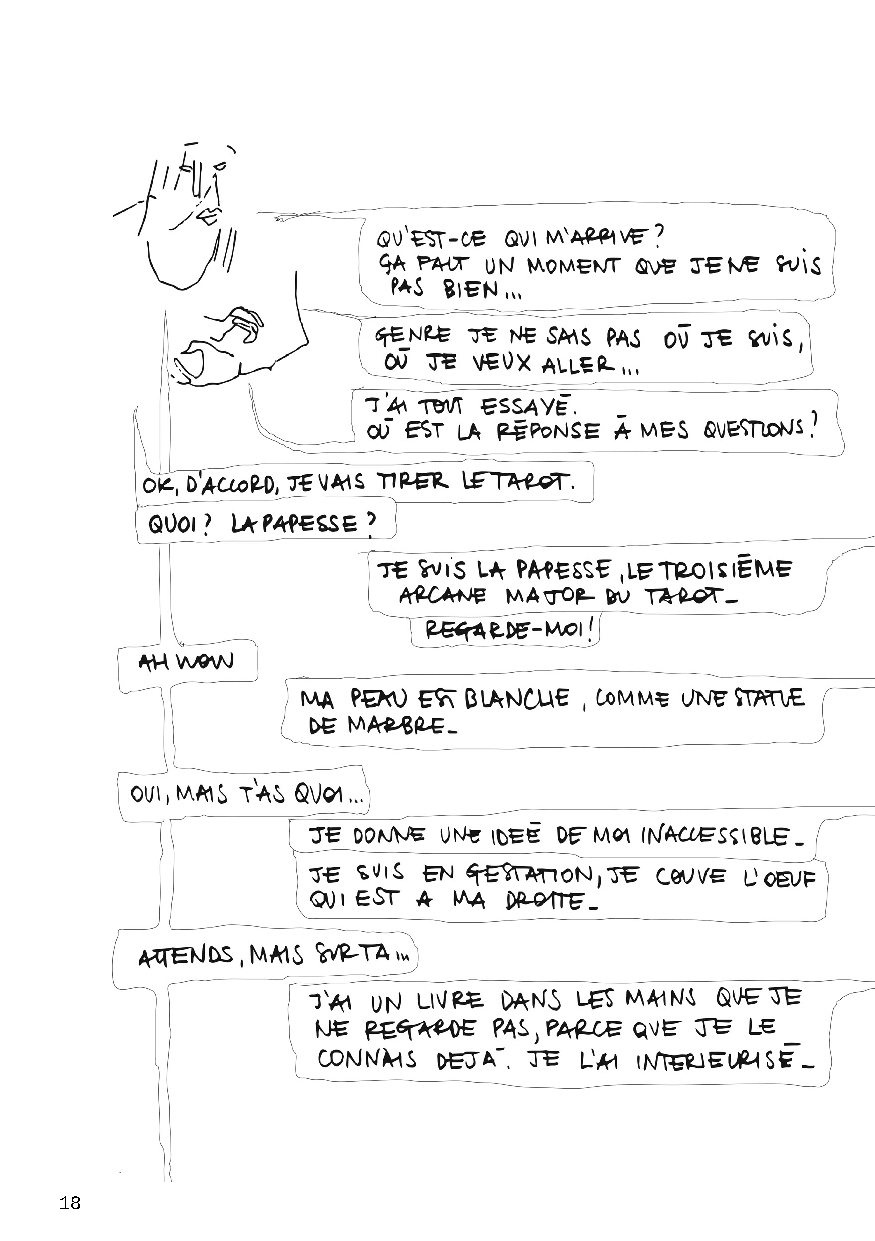 QU'EST-CE QUI M'ARRIVE?
ÇA FAIT UN MOMENT QUE JE NE SUIS
PAS BIEN...
GENRE JE NE SAIS PAS OŪ JE SUIS,
OŪ JE VEUX ALLER...
J'AI TOUT ESSAYĒ.
OŪ EST LA RĒPONSE Ā MES QUESTIONS?
OK, D'ACCORD, JE VAIS TIRER LE TAROT.
QUOI? LA PAPESSE?
JE SUIS LA PAPESSE, LE TROISIĒME
ARCANE MAJOR DU TAROT_
REGARDE-MOI!
AH WOW
MA PEAU EST BLANCHE, COMME UNE STATUE
DE MARBRE_
OUI, MAIS T'AS QUOI...
JE DONNE UNE IDEĒ DE MOI INACCESSIBLE_
JE SUIS EN GESTATION, JE COUVE L'OEUF
QUI EST A MA DROITE_
ATTENDS, MAIS SUR TA...
J'AI UN LIVRE DANS LES MAINS QUE JE
NE REGARDE PAS, PARCE QUE JE LE
CONNAIS DEJĀ. JE L'AI INTERIEURISĒ_
18